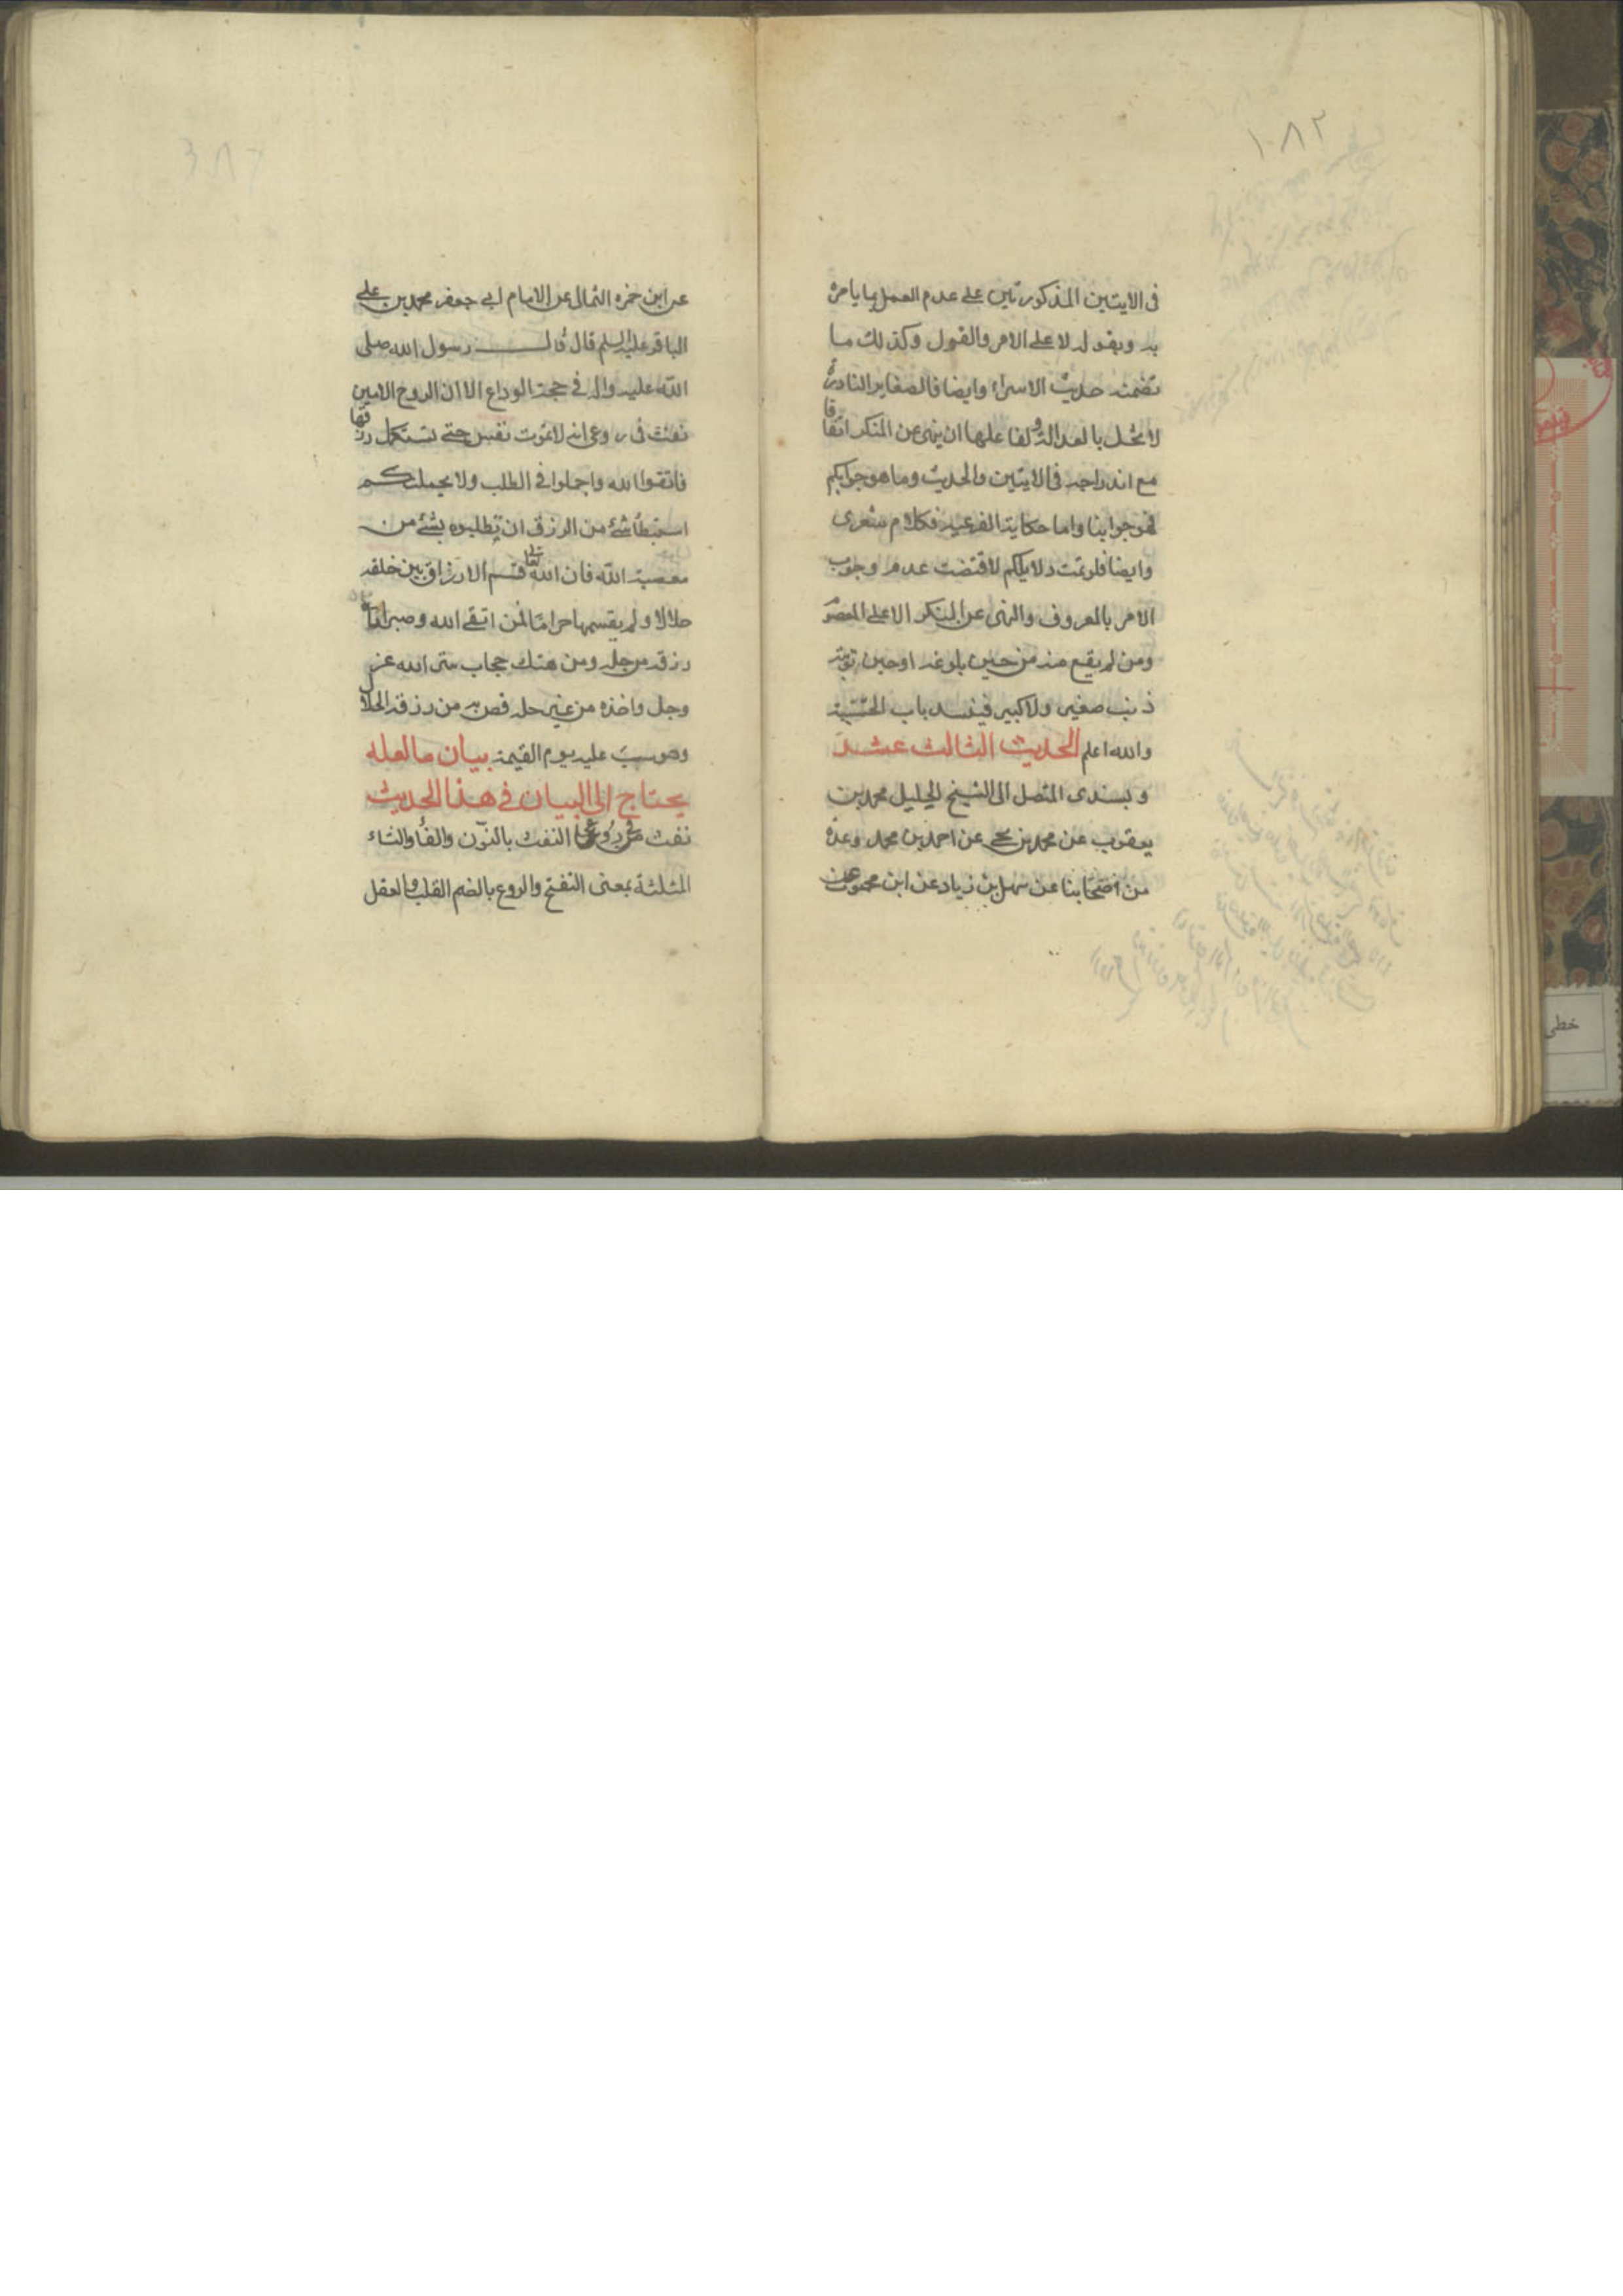 ١٠٨٢
فى الايتين المذكورتين على عدم العمل بما يامره
به ويقوله لا على الامر والقول وكذلك ما
تضمنه حديث الاسراء وايضا فالصغاير النادرة
لا تخل بالعدالة و لفاعلها ان ينهى عن المنكر اتفاقا
مع اندراجه فى الايتين والحديث وما هو جوابكم
فهو جوابنا واما حكاية الفرعية فكلام شعرى
وايضا فلو تمت دلايلكم لاقتضت عدم وجوب
الامر بالمعروف والنهى عن المنكر الا على المعصوم
ومن لم يقع منه من حين بلوغه او حين توبته
ذنب صغير ولا كبير فينسد باب الحسبة
والله اعلم الحديث الثالث عشر
وبسندى المتصل الى الشيخ الجليل محمد بن
يعقوب عن محمد بن يحيى عن احمد بن محمد وعدة
من اصحابنا عن سهل بن زياد عن ابن محبوب عن
عن ابن حمزه الثمالى عن الامام ابى جعفر محمد بن على
الباقر عليه السلم قال قال رسول الله صلى
الله عليه واله فى حجة الوداع الا ان الروح الامين
نفث فى روعى انه لا تموت نفس حتى تستكمل رزقها
فاتقوا الله واجملوا فى الطلب ولا يحملنكم
استبطاء شئ من الرزق ان تطلبوه بشئ من
معصية الله فان الله تعالى قسم الارزاق بين خلقه
حلالا ولم يقسمها حراما فمن اتقى الله وصبر اتاه
رزقه من حله ومن هتك حجاب ستر الله عز
وجل واخذه من غير حله قص به من رزقه الحلال
وحوسب عليه يوم القيمة بيان ما لعله
يحتاج الى البيان فى هذا الحديث
نفث فى روعى النفث بالنون والفاء والثاء
المثلثة بمعنى النفخ والروع بالضم القلب والعقل
خطى